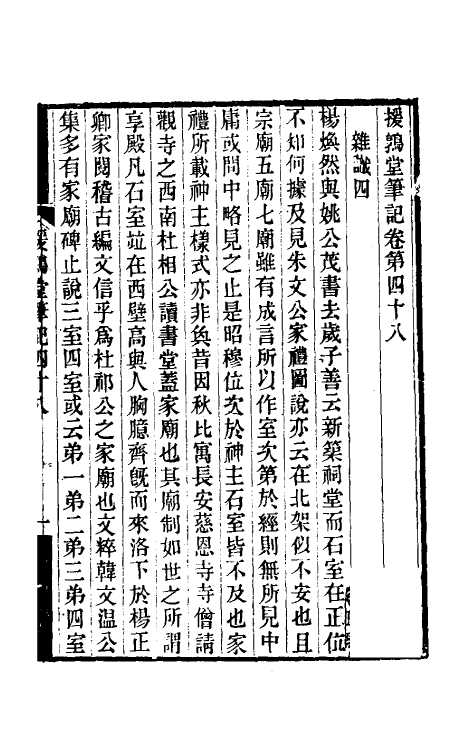 援鶉堂筆記卷第四十八
雜識四
楊煥然與姚公茂書去歲子善云新築祠堂而石室在正位
不知何據及見朱文公家禮圖說亦云在北架似不安也且
宗廟五廟七廟雖有成言所以作室次第於經則無所見中
庸或問中略見之止是昭穆位次於神主石室皆不及也家
禮所載神主樣式亦非奐昔因秋比寓長安慈恩寺寺僧請
觀寺之西南杜相公讀書堂蓋家廟也其廟制如世之所謂
享殿凡石室竝在西壁高與人胸臆齊旣而來洛下於楊正
卿家閱稽古編文信乎爲杜祁公之家廟也文粹韓文溫公
集多有家廟碑止說三室四室或云弟一弟二弟三弟四室
援鶉堂筆記四十八
一